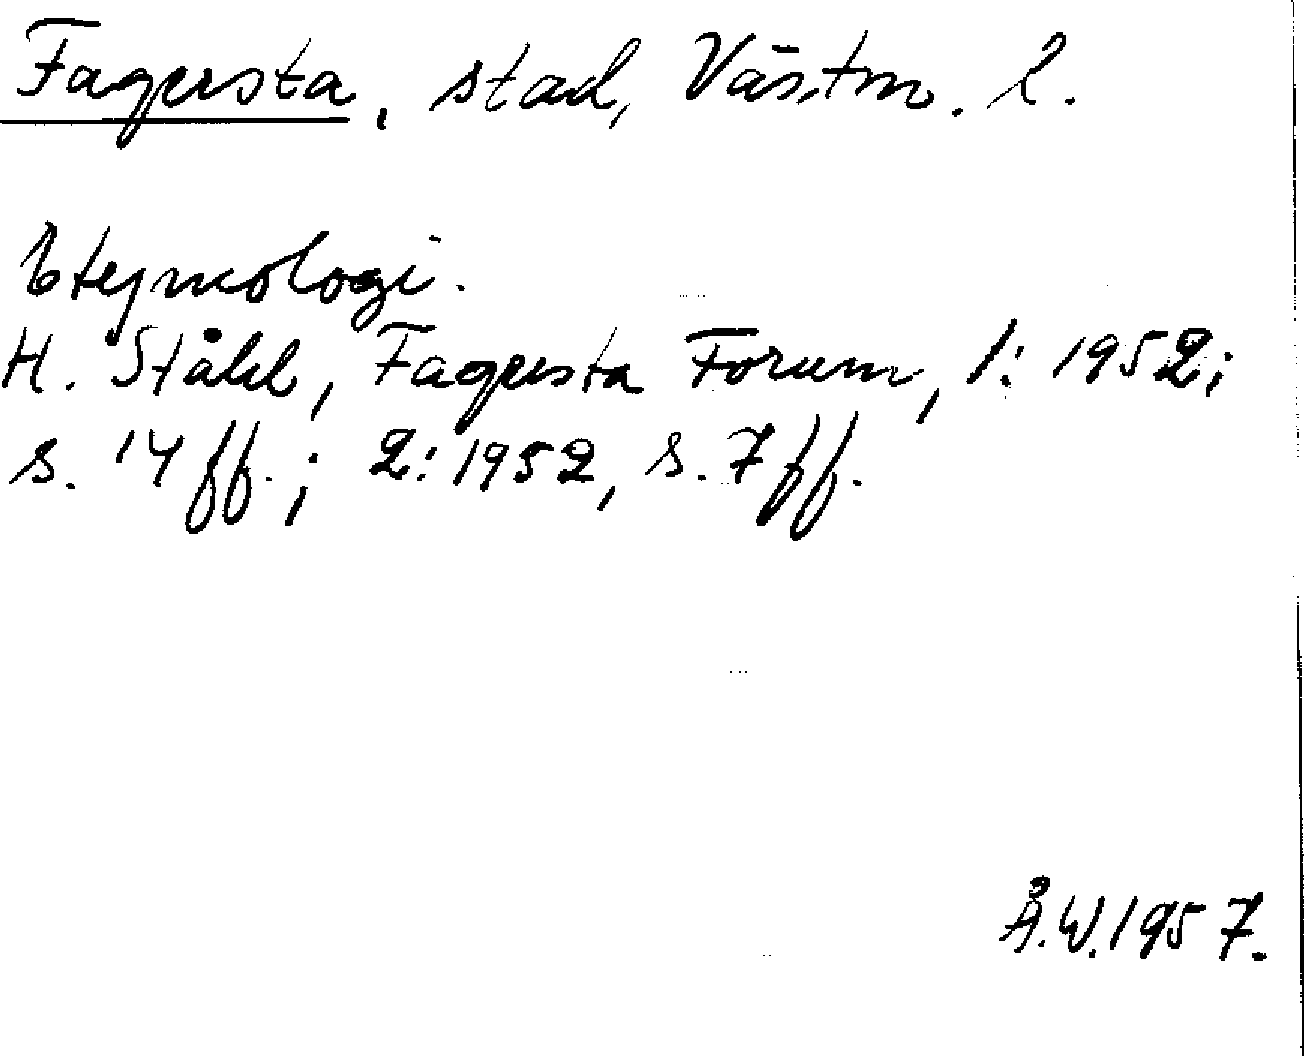 Fagersta, stad, Västm. l.
Etymologi.
H. Ståhl, Fagersta Forum, 1: 1952;
s. 14 ff.; 2: 1952, s. 7 ff.
Å.W. 1957.